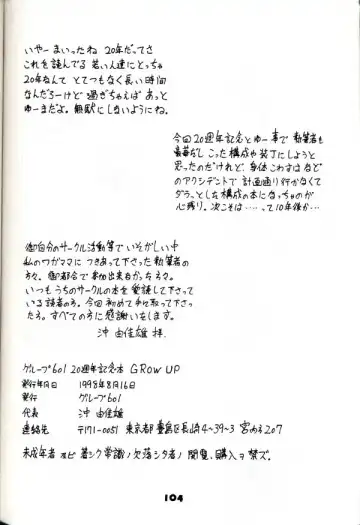 いやーまいったね 20年だってさ
これを読んでる若い人達にとっちゃ
20年なんて とてつもなく長い時間
なんだろーけど 過ぎちゃえば あっと
ゆーまだよ。無駄にしないようにね。
今回20週年記念とゆー事で執筆者も
こった構成や装丁にしようと
思ったのだけれど、身体こわすわなど
のアクシデントで計画通り行かなくて
ダラっとした構成の本になっちゃのが
心残り。次こそは……って10年後か…
御自分のサークル活動等でいそがしい中
私のワガママに つきあって下さった執筆者の
方々、御都合で参加出来なかった方々。
いつもうちのサークルの本を愛読して下さって
いる読者の方。今回初めて手に取って下さっ
た方。すべての方に感謝いたします。
沖 由佳雄 拝.
グループ601 20週年記念本 GROW UP
発行年月日 1998年8月16日
発行 グループ601
代表 沖 由佳雄
連絡先 〒171-0051 東京都豊島区長崎4-39-3 宮内方207
未成年者 及ビ 著シク常識ノ欠落シタ者ノ 閲覧、購入ヲ禁ズ。
104